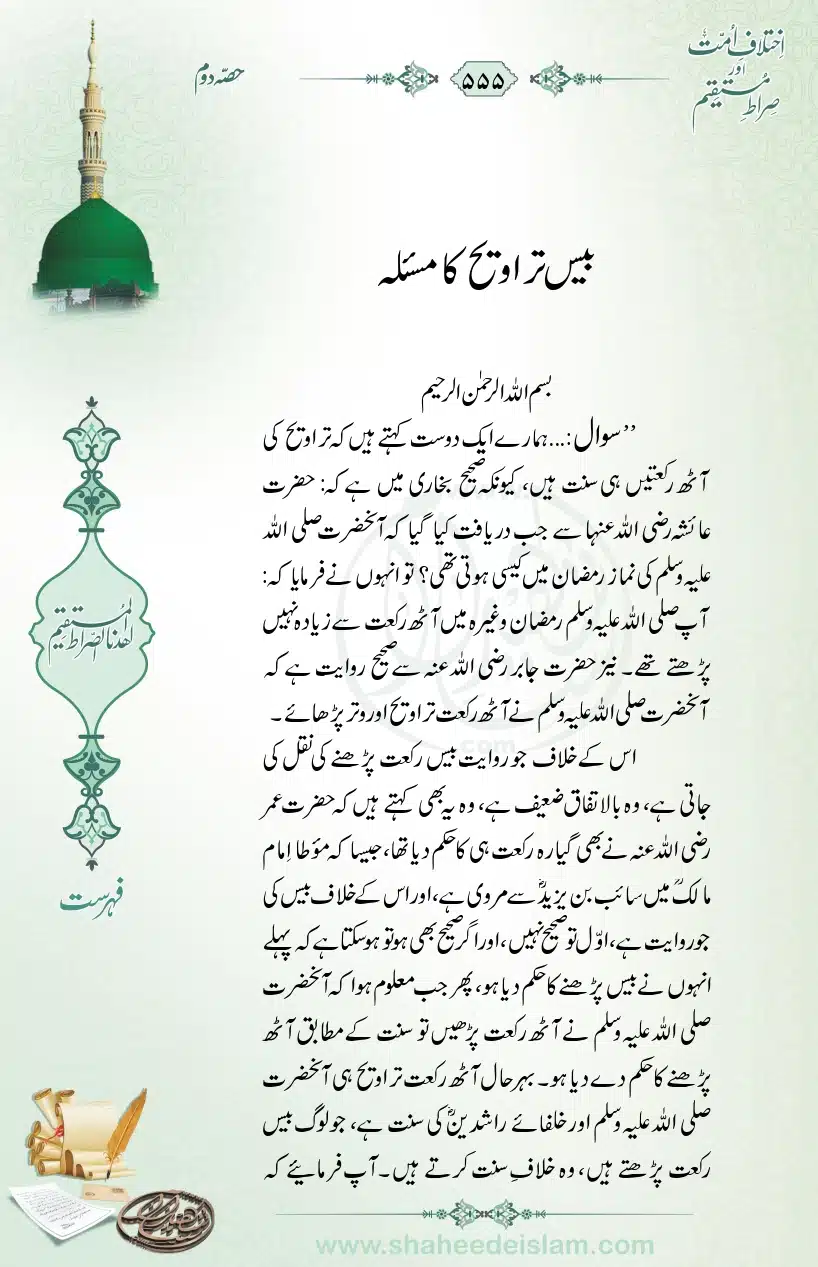 اِختلافِ اُمّت
اور
صِراطِ مُستقیم
۵۵۵
حصّہ دوم
بیس تراویح کا مسئلہ
بسم اللہ الرحمٰن الرحیم
’’سوال:...ہمارے ایک دوست کہتے ہیں کہ تراویح کی
آٹھ رکعتیں ہی سنت ہیں، کیونکہ صحیح بخاری میں ہے کہ: حضرت
عائشہ رضی اللہ عنہا سے جب دریافت کیا گیا کہ آنحضرت صلی اللہ
علیہ وسلم کی نماز رمضان میں کیسی ہوتی تھی؟ تو انہوں نے فرمایا کہ:
آپ صلی اللہ علیہ وسلم رمضان وغیرہ میں آٹھ رکعت سے زیادہ نہیں
پڑھتے تھے۔ نیز حضرت جابر رضی اللہ عنہ سے صحیح روایت ہے کہ
آنحضرت صلی اللہ علیہ وسلم نے آٹھ رکعت تراویح اور وتر پڑھائے۔
اس کے خلاف جو روایت بیس رکعت پڑھنے کی نقل کی
جاتی ہے، وہ بالاتفاق ضعیف ہے، وہ یہ بھی کہتے ہیں کہ حضرت عمر
رضی اللہ عنہ نے بھی گیارہ رکعت ہی کا حکم دیا تھا، جیسا کہ مؤطا اِمام
مالکؒ میں سائب بن یزیدؓ سے مروی ہے، اور اس کے خلاف بیس کی
جو روایت ہے، اوّل تو صحیح نہیں، اور اگر صحیح بھی ہو تو ہوسکتا ہے کہ پہلے
انہوں نے بیس پڑھنے کا حکم دیا ہو، پھر جب معلوم ہوا کہ آنحضرت
صلی اللہ علیہ وسلم نے آٹھ رکعت پڑھیں تو سنت کے مطابق آٹھ
پڑھنے کا حکم دے دیا ہو۔ بہرحال آٹھ رکعت تراویح ہی آنحضرت
صلی اللہ علیہ وسلم اور خلفائے راشدینؓ کی سنت ہے، جو لوگ بیس
رکعت پڑھتے ہیں، وہ خلافِ سنت کرتے ہیں۔ آپ فرمائیے کہ
اھدنا الصّراط المُستقیم
فہرست
www.shaheedeislam.com